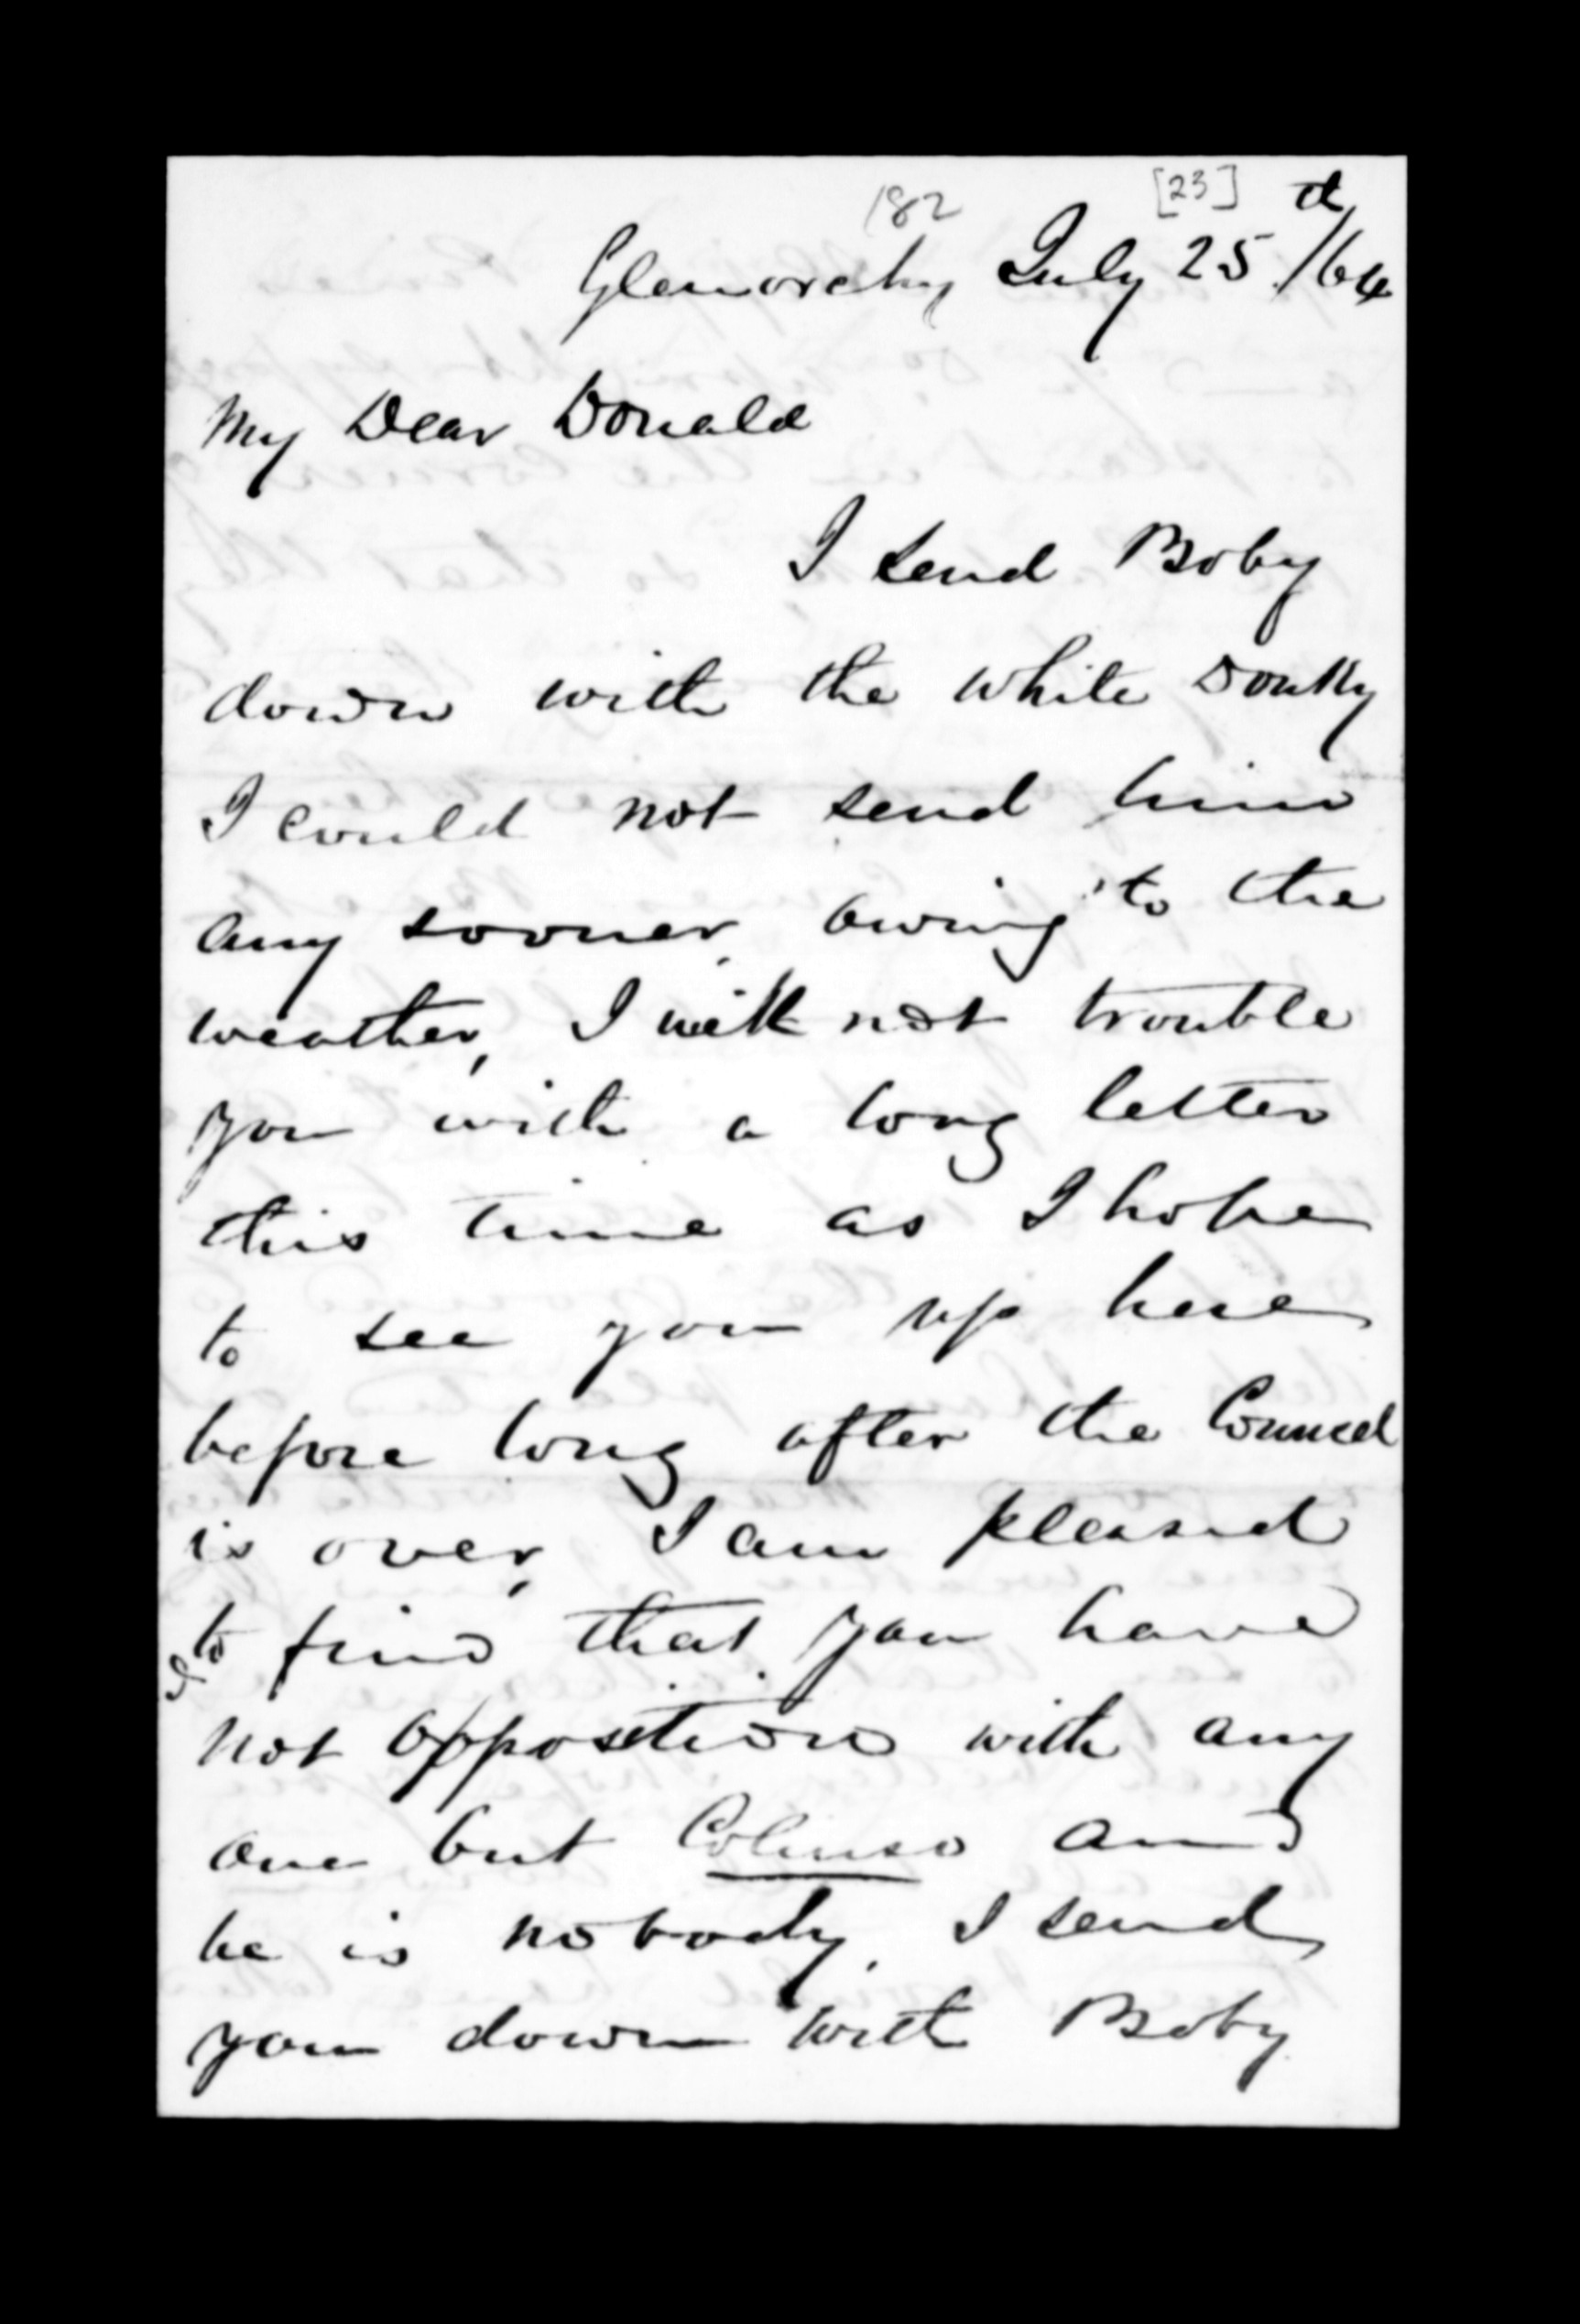 182 [23]
Glenorchy July 25th/64
My Dear Donald
I send Boby
down with the white Donky
I could not send him
any sooner, owing to the
weather, I will not trouble
you with a long letter
this time as I hope
to see you up here
before long after the Councel
is over, I am pleased
to find that you have
not opposition with any
one but Colenso and
he is nobody, I send
you down with Boby